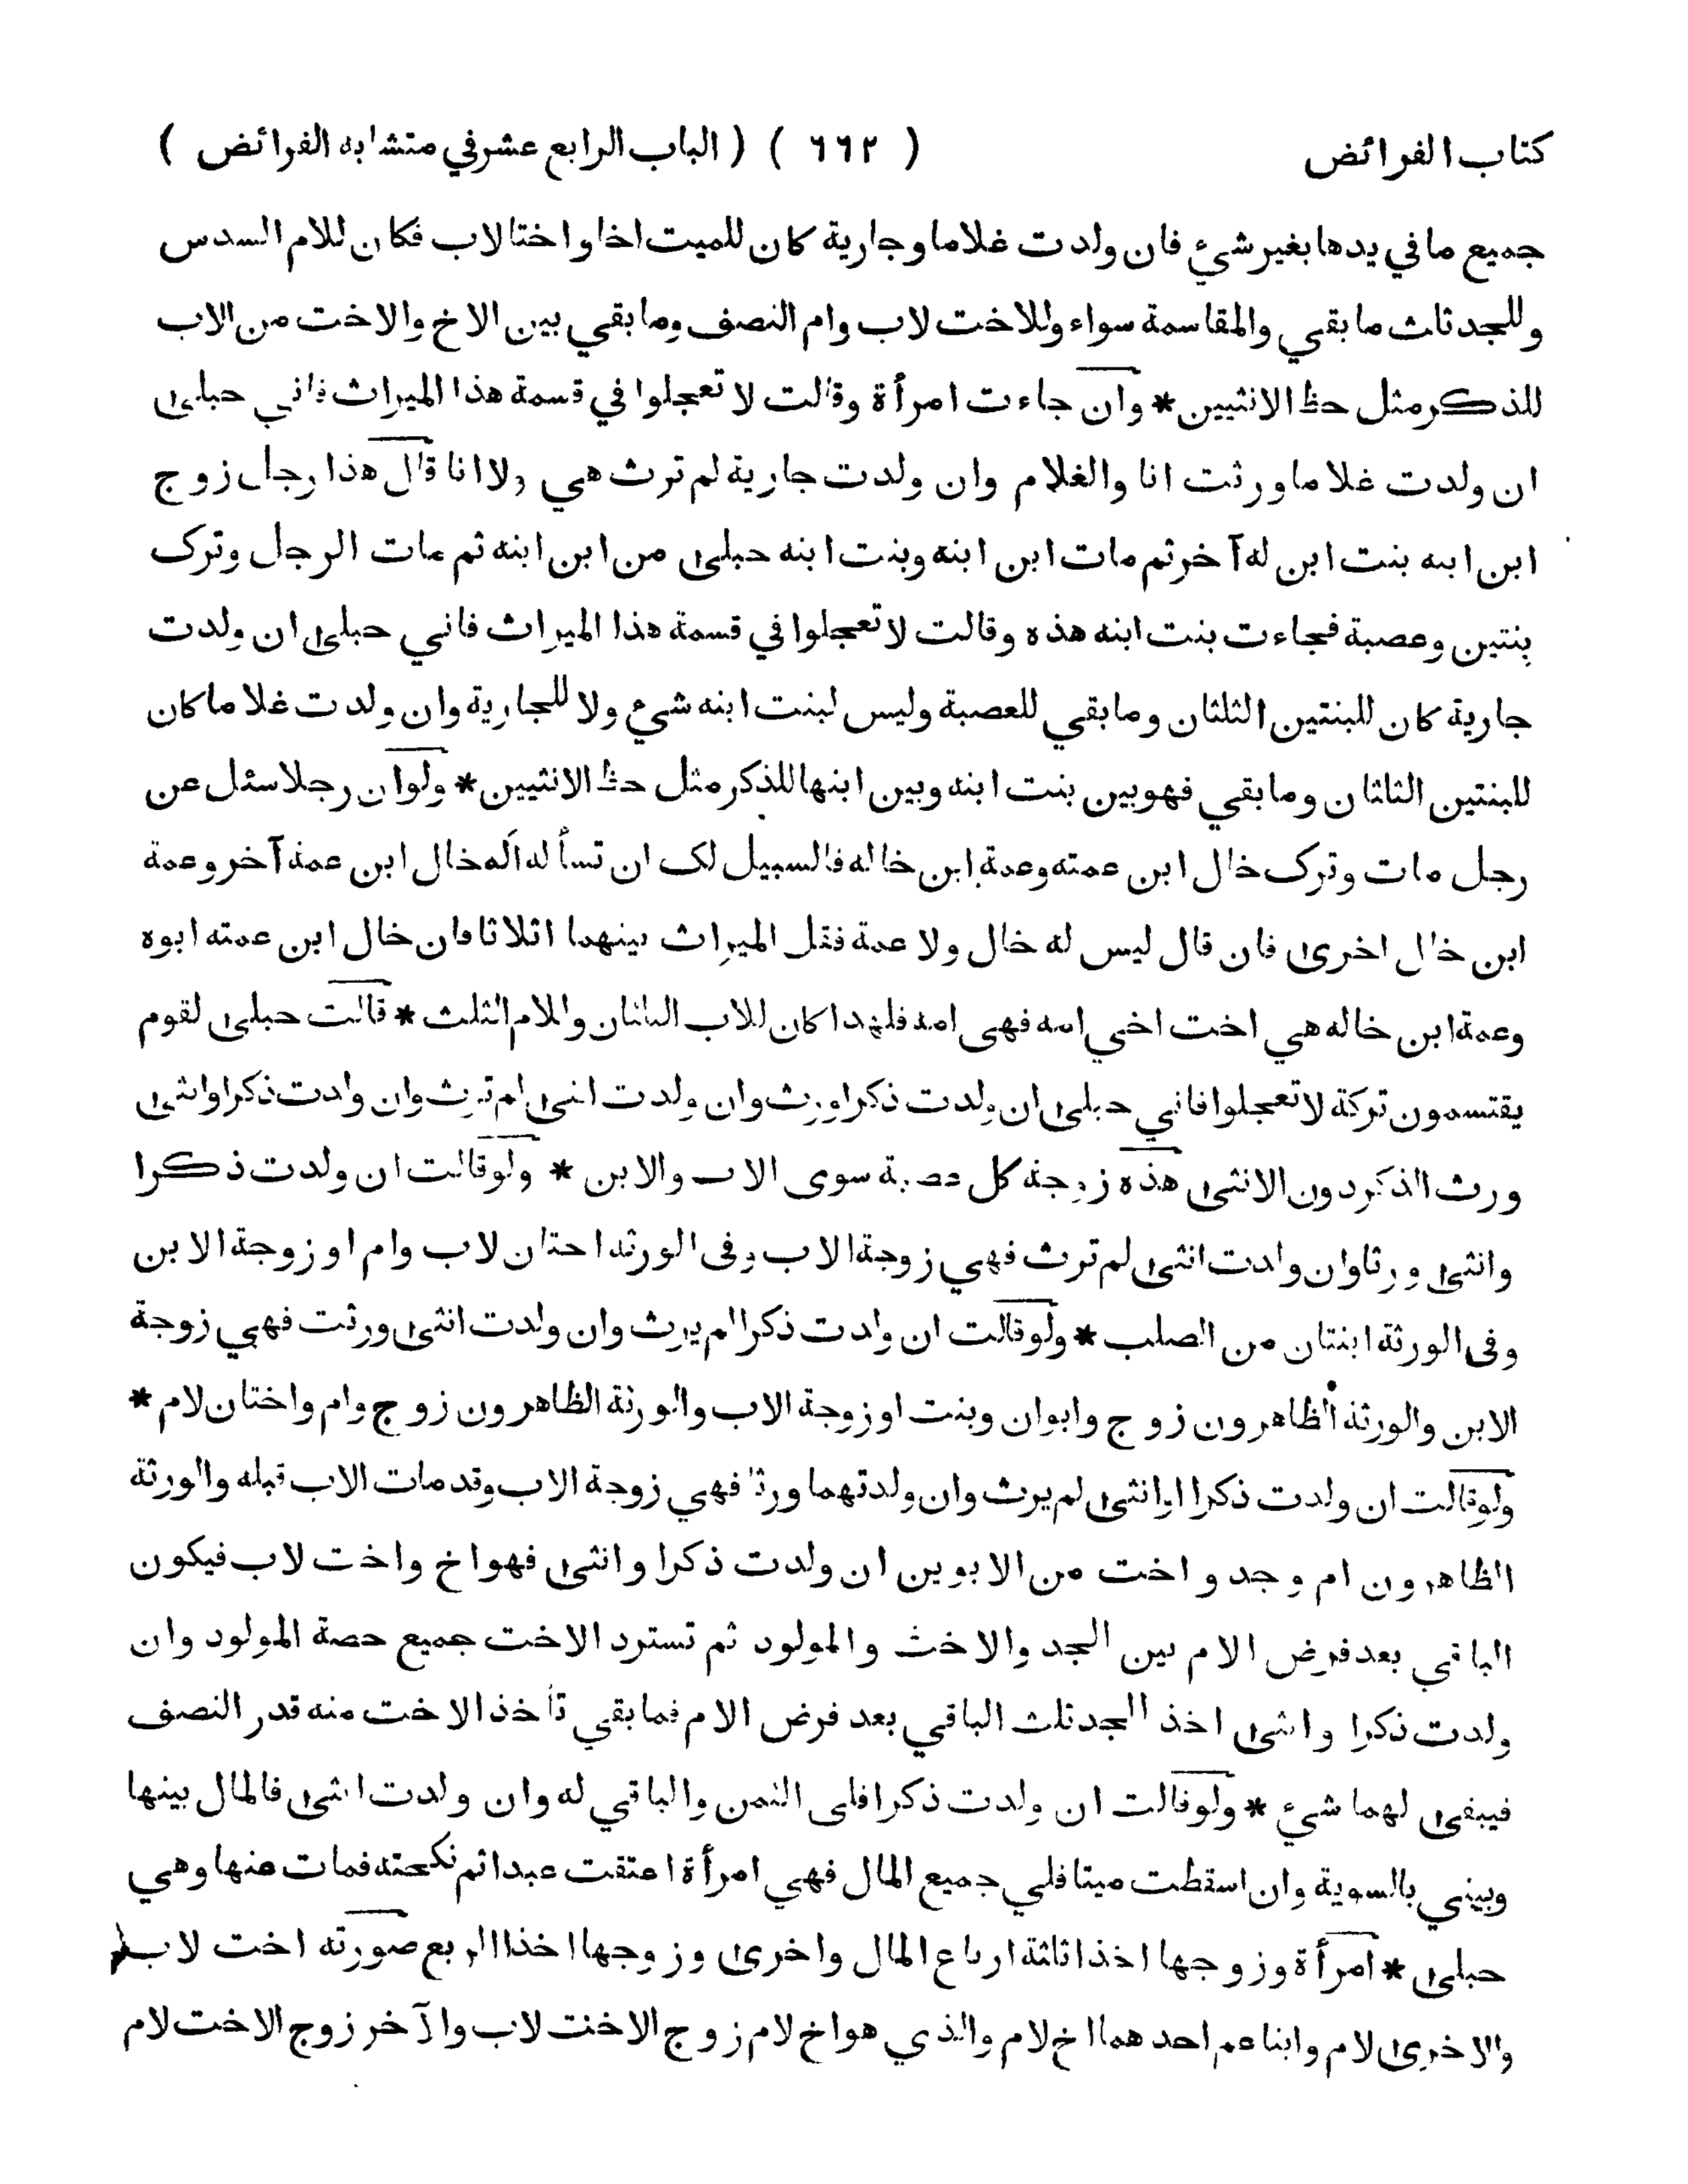 كتاب الفرائض ( ٦٦٢ ) ( الباب الرابع عشر في متشابه الفرائض )
جميع ما في يدها بغير شيء فان ولدت غلاما وجارية كان للميت اخا واختا لاب فكان للام السدس
وللجد ثلث ما بقي والمقاسمة سواء وللاخت لاب وام النصف وما بقي بين الاخ والاخت من الاب
للذكر مثل حظ الانثيين * وان جاءت امرأة وقالت لا تعجلوا في قسمة هذا الميراث فاني حبلى
ان ولدت غلاما ورثت انا والغلام وان ولدت جارية لم ترث هي ولا انا قال هذا رجل زوج
ابن ابنه بنت ابن له آخر ثم مات ابن ابنه وبنت ابنه حبلى من ابن ابنه ثم مات الرجل وترك
بنتين وعصبة فجاءت بنت ابنه هذه وقالت لا تعجلوا في قسمة هذا الميراث فاني حبلى ان ولدت
جارية كان للبنتين الثلثان وما بقي للعصبة وليس لبنت ابنه شيء ولا للجارية وان ولدت غلاما كان
للبنتين الثلثان وما بقي فهو بين بنت ابنه وبين ابنها للذكر مثل حظ الانثيين * ولو ان رجلا سئل عن
رجل مات وترك خال ابن عمته وعمة ابن خاله فالسبيل لك ان تسأله أله خال ابن عمة آخر وعمة
ابن خال اخرى فان قال ليس له خال ولا عمة فقل الميراث بينهما اثلاثا فان خال ابن عمته ابوه
وعمة ابن خاله هي اخت اخي امه فهي امه فلهذا كان للاب الثلثان وللام الثلث * قالت حبلى لقوم
يقتسمون تركة لا تعجلوا فاني حبلى ان ولدت ذكرا ورث وان ولدت انثى لم ترث وان ولدت ذكرا وانثى
ورث الذكر دون الانثى هذه زوجة كل عصبة سوى الاب والابن * ولو قالت ان ولدت ذكرا
وانثى ورثا وان ولدت انثى لم ترث فهي زوجة الاب وفى الورثة اختان لاب وام او زوجة الابن
وفى الورثة ابنتان من الصلب * ولو قالت ان ولدت ذكرا لم يرث وان ولدت انثى ورثت فهي زوجة
الابن والورثة الظاهرون زوج وابوان وبنت او زوجة الاب والورثة الظاهرون زوج وام واختان لام *
ولو قالت ان ولدت ذكرا او انثى لم يرث وان ولدتهما ورثا فهي زوجة الاب وقد مات الاب قبله والورثة
الظاهرون ام وجد واخت من الابوين ان ولدت ذكرا وانثى فهو اخ واخت لاب فيكون
الباقي بعد فرض الام بين الجد والاخث والمولود ثم تسترد الاخت جميع حصة المولود وان
ولدت ذكرا وانثى اخذ الجد ثلث الباقي بعد فرض الام فما بقي تأخذ الاخت منه قدر النصف
فيبقى لهما شيء * ولو قالت ان ولدت ذكرا فلى الثمن والباقي له وان ولدت انثى فالمال بينها
وبيني بالسوية وان اسقطت ميتا فلي جميع المال فهي امرأة اعتقت عبدا ثم نكحته فمات عنها وهي
حبلى * امرأة وزوجها اخذا ثلثة ارباع المال واخرى وزوجها اخذا الربع صورته اخت لاب
والاخرى لام وابنا عم احدهما اخ لام والذي هو اخ لام زوج الاخت لاب والآخر زوج الاخت لام